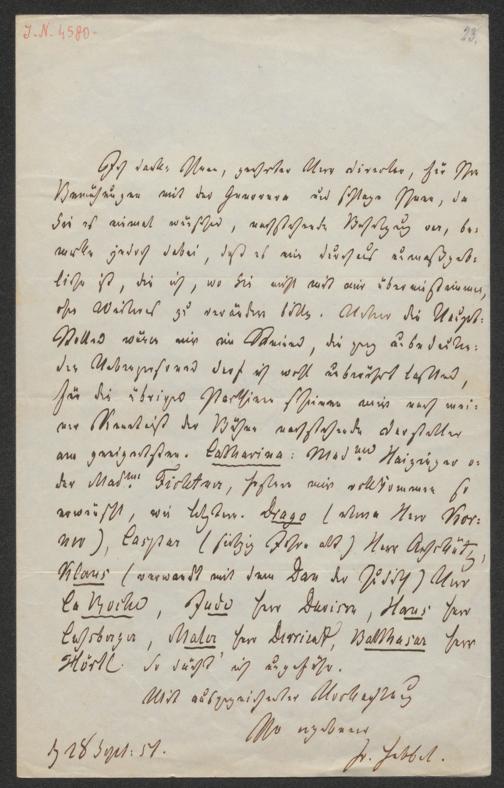 J. N. 4580.
23.
Ich danke Ihnen, geehrter Herr Director, für Ihre
Bemühungen mit der Genoveva und schlage Ihnen, da
Sie es einmal wünschen, nachstehende Besetzung vor, be-
merke jedoch dabei, daß es eine durchaus unmaßgeb-
liche ist, die ich, wo Sie nicht mit mir übereinstimmen,
ohne Weiteres zu verändern bitte. Ueber die Haupt-
Rollen wären wir im Reinen, die ganz unbedeuten-
den Nebenpersonen darf ich wohl unberührt lassen,
für die übrigen Parthieen scheinen mir nach mei-
ner Kenntniß der Bühne nachstehende Darsteller
am geeignetsten. Catharina: Mad. Haizinger o-
der Mad. Fichtner, erstere mir vollkommen so
erwünscht, wie letztere. Drago (etwa Herr Kor-
ner), Caspar (siebzig Jahre alt) Herr Anschütz,
Klaus (verwandt mit dem Dan. der Judith) Herr
La Roche, Jude Herr Dawison, Hans Herr
Lußberger, Maler Herr Devrient, Balthasar Herr
Hörtl. So dächt' ich ungefähr.
Mit ausgezeichneter Hochachtung
Ihr ergebener
d 28 Sept: 51.
Fr. Hebbel.